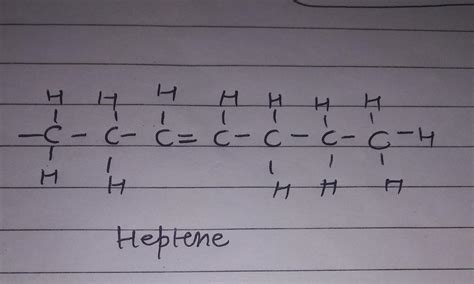 H H H H H H H
— C — C — C = C — C — C — C — H
H H H H H
Heptene